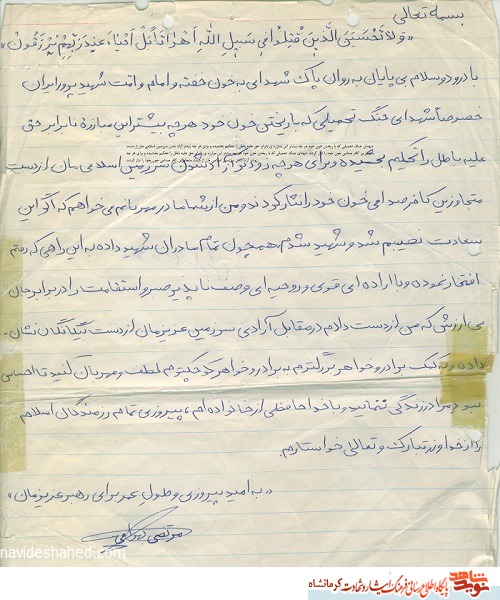 بسمه تعالی
«ولا تحسبن الذین قتلوا فی سبیل الله امواتا بل احیاء عند ربهم یرزقون»
با درود و سلام بی پایان به روان پاک شهدای به خون خفته و امام و امت شهید پرور ایران
خصوصاً شهدای جنگ تحمیلی که با ریختن خون خود هر چه بیشتر این مبارزه نابرابر حق
علیه باطل را تحکیم بخشیده و برای هر چه زودتر آزاد شدن سرزمین اسلامی مان از دست
متجاوزین کافر صدامی خون خود را نثار کردند و من از شما مادر مهربانم می خواهم که اگر این
سعادت نصیبم شد و شهید شدم همچون تمام مادران شهید داده به این راهی که رفتم
افتخار نموده و با اراده ای قوی و روحیه ای وصف ناپذیر صبر و استقامت را در برابر جان
بی ارزشی که من از دست دادم در مقابل آزادی سرزمین عزیزمان از دست بیگانگان نشان
داده و به کمک برادر و خواهر بزرگترم به برادر و خواهر کوچکترم لطف و مهربان کنید تا احساس
نبود مرا در زندگی ننمایند و با خداحافظی از خانواده ام، پیروزی تمام رزمندگان اسلام
را از خداوند تبارک و تعالی خواستارم.
«به امید پیروزی و طول عمر برای رهبر عزیزمان»
مرتضی
navideshahed.com
نوید شاهد
پایگاه اطلاع رسانی فرهنگ ایثار و شهادت کرمانشاه